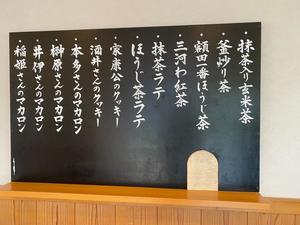 抹茶入り玄米茶
釜炒り茶
額田一番ほうじ茶
三河わ紅茶
抹茶ラテ
ほうじ茶ラテ
家康公のクッキー
酒井さんのクッキー
本多さんのマカロン
榊原さんのマカロン
井伊さんのマカロン
稲姫さんのマカロン